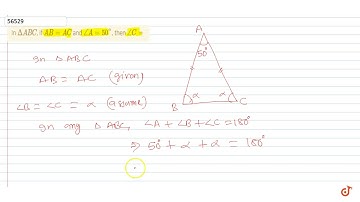 56529
In ΔABC, if AB = AC and ∠A = 50°, then ∠C =
In Δ ABC
AB = AC (given)
∠B = ∠C = α (assume)
In any Δ ABC, ∠A + ∠B + ∠C = 180°
⇒ 50° + α + α = 180°
A
50°
α
α
B
C